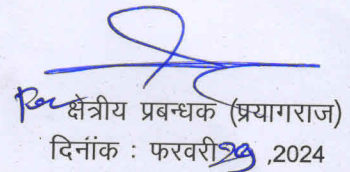 क्षेत्रीय प्रबन्धक (प्रयागराज)
दिनांक : फरवरी 29 ,2024